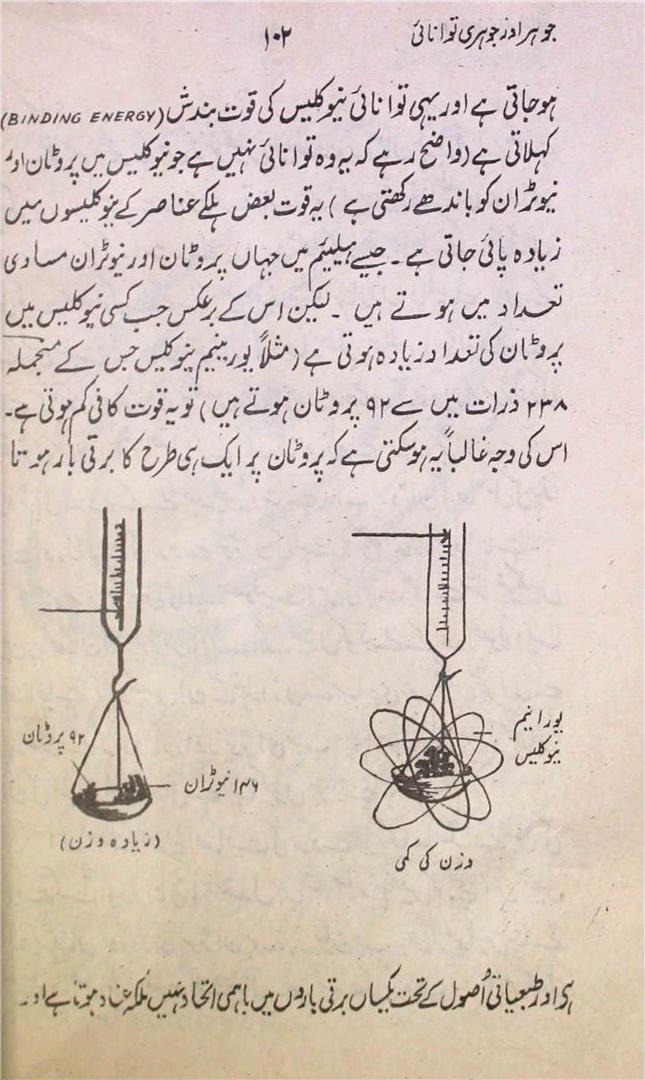 جوہر اور جوہری توانائی
۱۰۲
ہو جاتی ہے اور یہی توانائی نیوکلیس کی قوت بندش (BINDING ENERGY)
کہلاتی ہے (واضح رہے کہ یہ وہ توانائی نہیں ہے جو نیوکلیس میں پروٹان اور
نیوٹران کو باندھے رکھتی ہے) یہ قوت بعض ہلکے عناصر کے نیوکلیسوں میں
زیادہ پائی جاتی ہے۔ جیسے ہیلیئم میں جہاں پروٹان اور نیوٹران مساوی
تعداد میں ہوتے ہیں ۔ لیکن اس کے برعکس جب کسی نیوکلیس میں
پروٹان کی تعداد زیادہ ہوتی ہے (مثلاً یورینیم نیوکلیس جس کے منجملہ
۲۳۸ ذرات میں سے ۹۲ پروٹان ہوتے ہیں) تو یہ قوت کافی کم ہوتی ہے۔
اس کی وجہ غالباً یہ ہو سکتی ہے کہ پروٹان پر ایک ہی طرح کا برقی بار ہوتا
یورانیم
نیوکلیس
۹۲ پروٹان
۱۴۶ نیوٹران
(زیادہ وزن)
وزن کی کمی
ہے اور طبیعیاتی اُصول کے تحت یکساں برقی باروں میں باہمی اتحاد نہیں بلکہ عناد ہوتا ہے اور